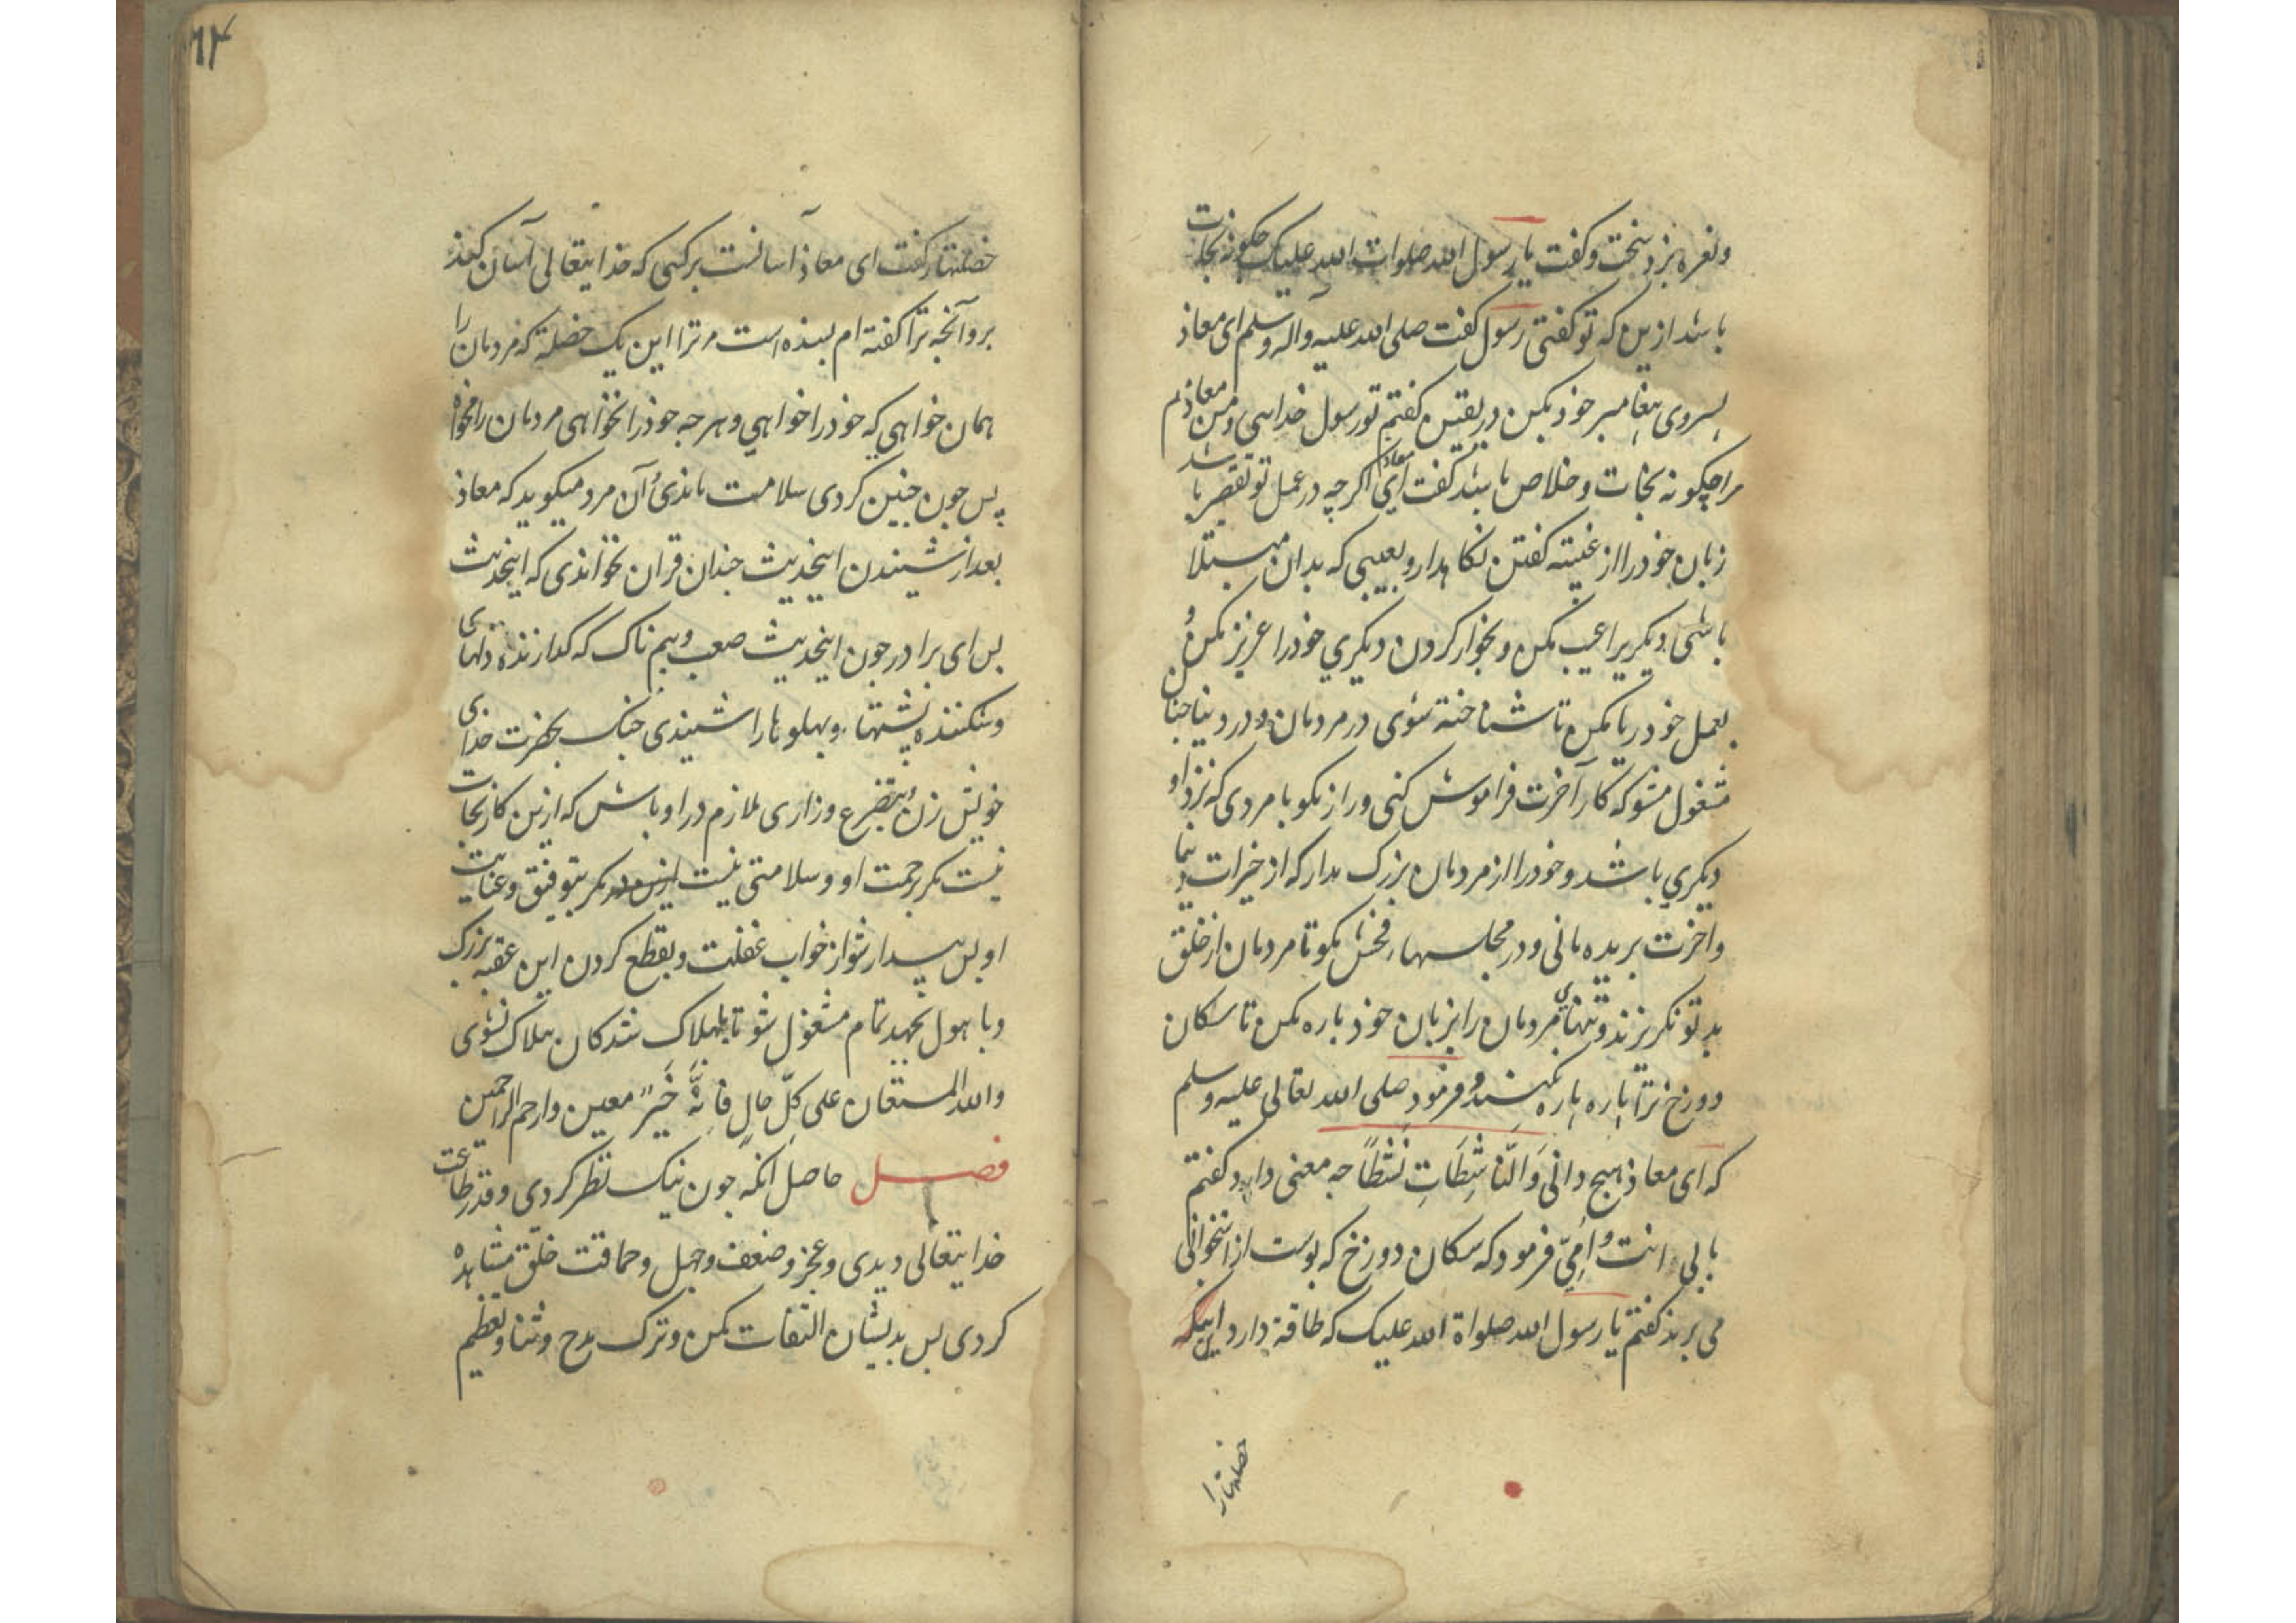 ونعره بزد سخت و کفت یا رسول الله صلوات الله علیک چکونه نجات
باشد ازین که تو کفتی رسول کفت صلی الله علیه وآله وسلم ای معاذ
پیروی پیغامبر خود بکن در یقین کفتم تو رسول خدایی و من معاذم
مرا چکونه نجات و خلاص باشد کفت ای معاذ اکرچه در عمل تو تقصیر باشد
زبان خود را از غیبته کفتن نکاهدار و بعیبی که بدان مبتلا
باشی دیکریرا عیب مکن و بخوار کردن دیکری خود را عزیز مکن و
بعمل خود ریا مکن تا شناخته شوی در مردمان و در دنیا چنان
مشغول مشو که کار آخرت فراموش کنی و راز مکو با مردی که نزد او
دیکری باشد و خود را از مردمان بزرک مدار که از خیرات دنیا
واخرت بریده مانی و در مجلسها فحش مکو تا مردمان از خلق
بد تو نکریزند و تنهایی مردمان را بزبان خود پاره مکن تا سکان
دوزخ ترا پاره پاره نکنند و فرمود صلی الله تعالی علیه وسلم
که ای معاذ هیچ دانی وَالنَّاشِطَاتِ نَشْطًا چه معنی دارد کفتم
بابی انت و اُمِّی فرمود که سکان دوزخ که پوست از استخوان
می برند کفتم یا رسول الله صلواة الله علیک که طاقة دارد اینکه
خصلتهارا
خصلتها را کفت ای معاذ آسانست بر کسی که خدایتعالی آسان کند
برو آنچه ترا کفته ام بسنده است مر ترا این یک خصلة که مردمان را
همان خواهی که خود را خواهی و هر چه خود را نخواهی مردمان را مخواه
پس چون چنین کردی سلامت ماندی آن مرد میکوید که معاذ
بعد از شنیدن اینحدیث چندان قران نخواندی که اینحدیث
پس ای برادر چون اینحدیث صعب و بیم ناک که کدازنده دلهای
و شکننده پشتها و پهلوها را شنیدی چنک بحضرت خدای
خویش زن و بتضرع وزاری ملازم در او باش که ازین کار نجات
نیست مکر برحمت او و سلامتی نیست مکر بتوفیق و عنایت
او پس بیدار شو از خواب غفلت و بقطع کردن این عقبه بزرک
و با هول بجهد تمام مشغول شو تا بهلاک شدکان هلاک نشوی
والله المستعان علی کلّ حالٍ فانّهُ خَیر معین وارحم الراحمین
فصل حاصل آنکه چون نیک نظر کردی و قدر طاعت
خدایتعالی دیدی و عجز و ضعف و جهل و حماقت خلق مشاهده
کردی پس بدیشان التفات مکن و ترک مدح و ثنا و تعظیم